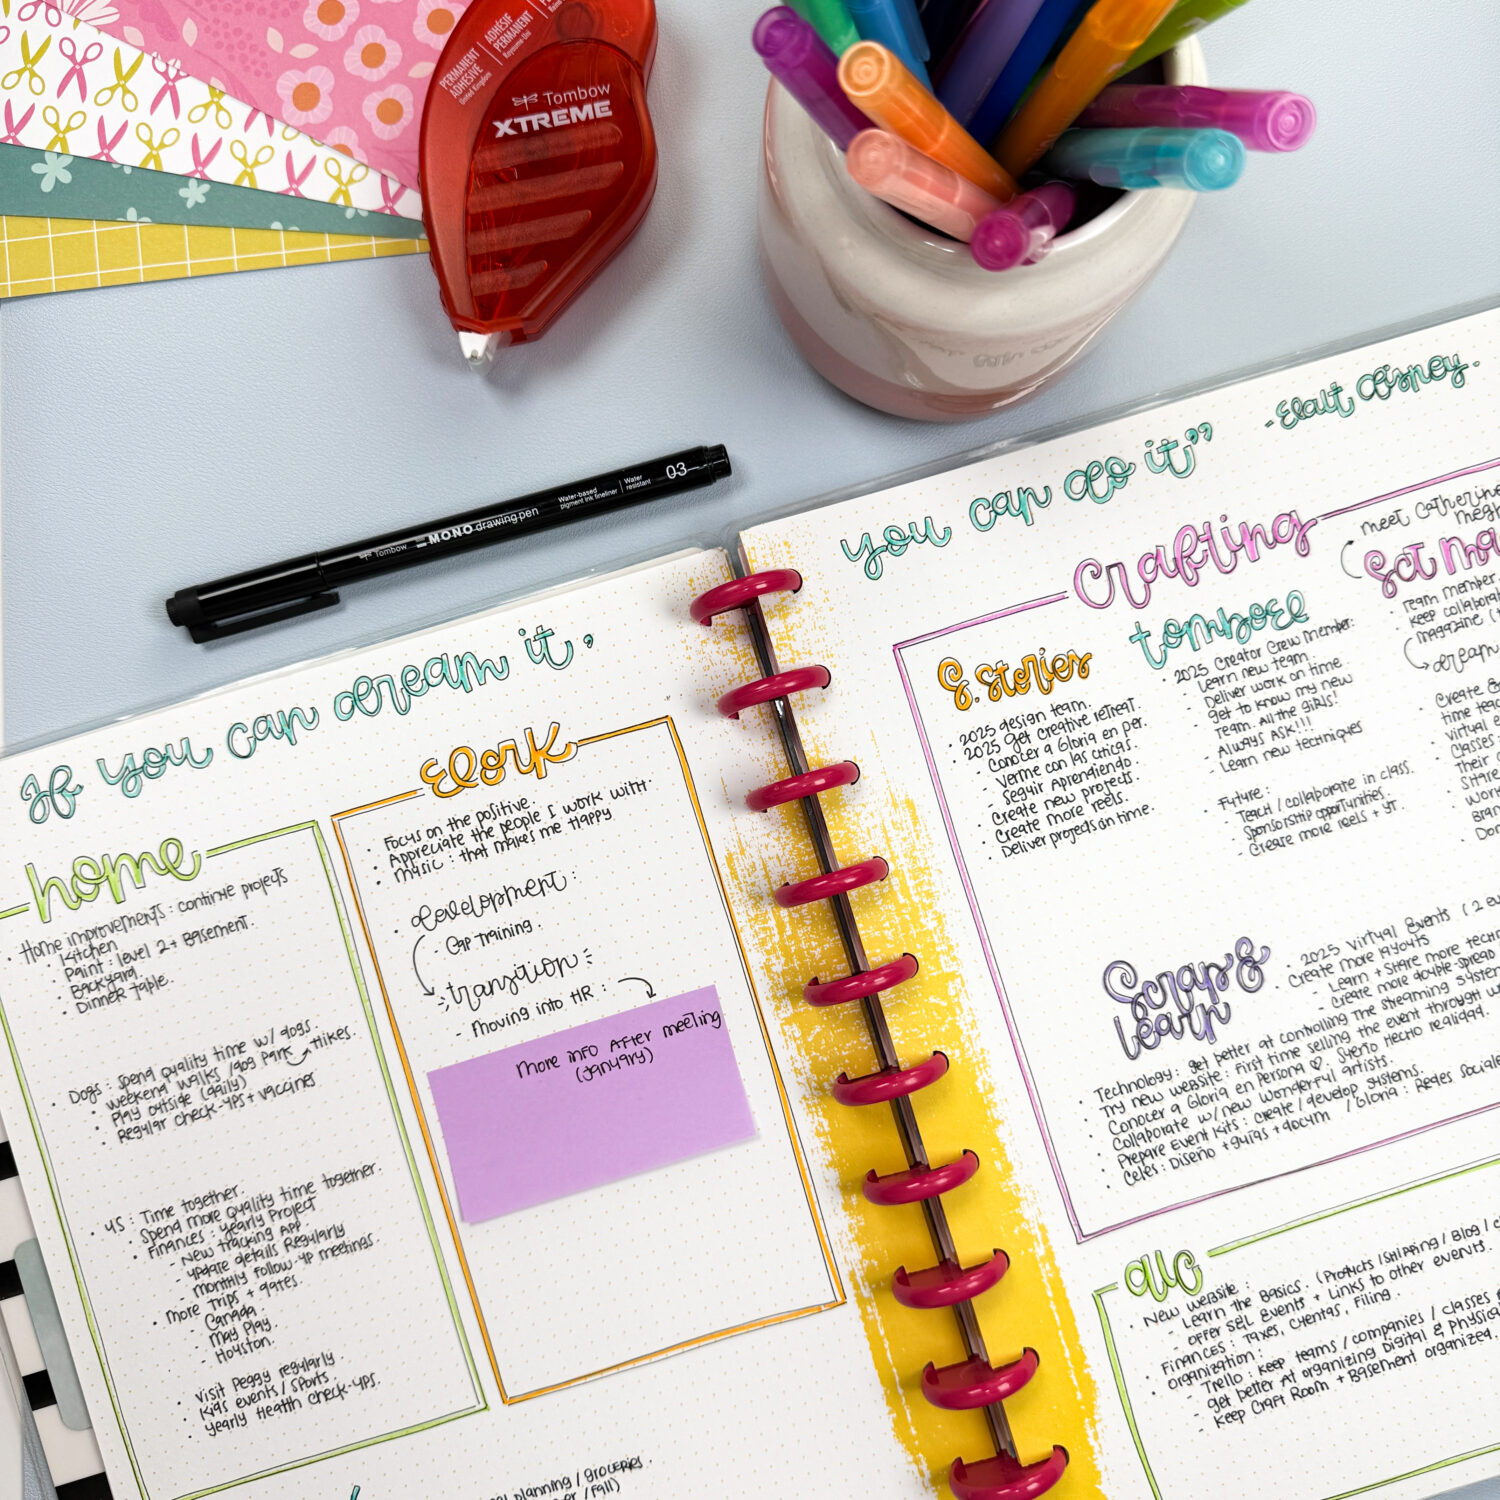 PERMANENT ADHESIVE
United Kingdom
ADHÉSIF PERMANENT
Royaume Uni
Tombow
XTREME
Tombow MONO drawing pen
Water-based pigment ink fineliner
Water resistant
03
If you can dream it,
home
• Home improvements: continue projects
• Kitchen
• Paint: level 2 + Basement.
• Backyard.
• Dinner table.
• Dogs: spend quality time w/ dogs.
• weekend walks/dog park → Hikes.
• Play outside (daily)
• Regular check-ups + vaccines
• us: Time together.
• Spend more quality time together.
• Finances: yearly project
- New tracking app
- update details regularly
- monthly follow-up meetings.
• more trips + dates.
- Canada.
- May Play.
- Houston.
• visit Peggy regularly.
• Kids events/sports.
• yearly Health check-ups.
Work
• Focus on the positive.
• Appreciate the people I work with.
• Music: that makes me happy
• development:
- Cap Training.
transition
- Moving into HR:
More info after meeting
(January)
planning / groceries.
/Fall)
you can do it"
- Walt Disney.
Crafting
S. Stories
• 2025 design team.
• 2025 get creative retreat.
- Conocer a Gloria en per.
- Verme con las chicas.
- Seguir Aprendiendo.
• Create new projects.
• Create more reels.
• Deliver projects on time.
tombow
• 2025 Creator Crew Member:
- Learn new team.
- Deliver work on time
- get to know my new
team. All the girls!
- Always Ask!!!
- Learn new techniques
• Future:
- Teach/collaborate in class.
- Sponsorship opportunities.
- Create more reels + YT.
meet Catherine
• Team member
• Keep collaborat
magazine (
dream
• Create
time teac
virtual e
classes
their
• Share
work
Bran
Scrap &
Learn
• 2025 Virtual Events (2 ev
• Create more layouts
- Learn + share more techn
- Create more double-spread
• Technology: get better at controlling the streaming system
• Try new website: First time selling the event through w
• Conocer a Gloria en Persona ♡. Sueño hecho realidad.
• Collaborate w/ new wonderful artists.
• Prepare Event Kits: create/develop systems.
• Celes: Diseño + guías + docum / Gloria: Redes Sociale
• New website:
- Learn the basics. (Products/Shipping/Blog/c
- offer S&L Events + Links to other events.
• Finances: Taxes, cuentas, filing.
• organization:
- Trello: keep teams/companies/classes
- get better at organizing Digital & Physica
- keep Craft Room + Basement organized.